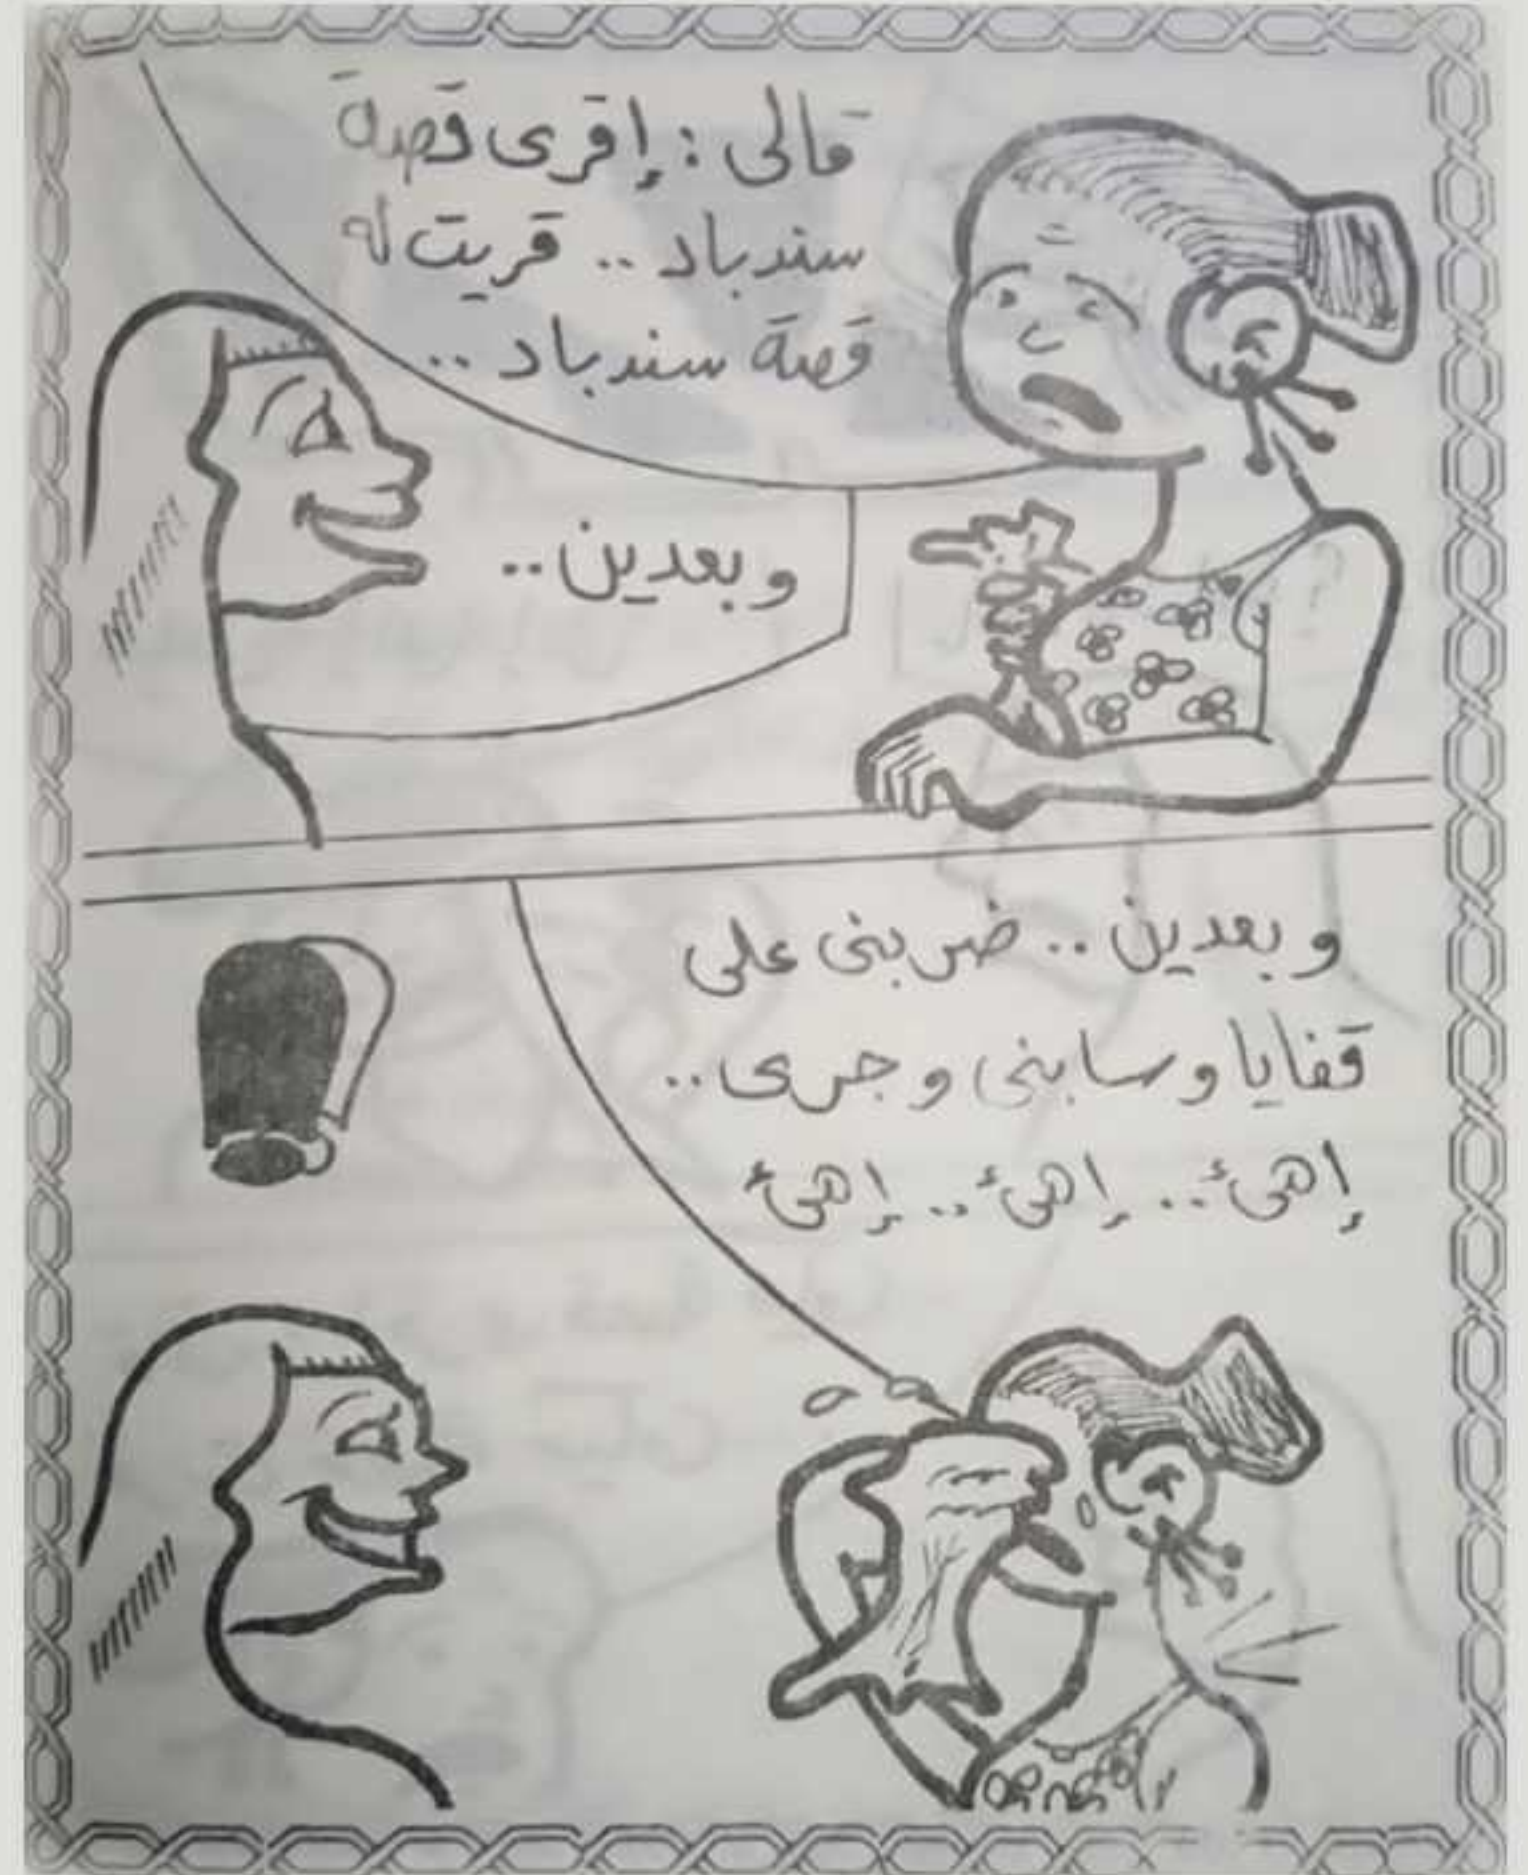 قالى : إقرى قصة
سندباد .. قريت له
قصة سندباد ..
وبعدين ..
وبعدين .. ضربنى على
قفايا وسابنى وجرى ..
إهئ .. إهئ .. إهئ